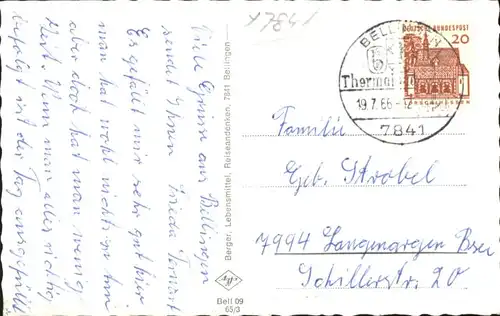 Viele Grüsse aus Bellingen
sendet Ihnen Frieda
Es gefällt mir sehr gut hier
man hat wohl nichts zu tun
aber doch hat man wenig
Zeit. Wenn man alles richtig
befolgt ist der Tag ausgefüllt
Berger, Lebensmittel, Reiseandenken, 7841 Bellingen
Bell 09
65/3
7841
BELLINGEN
Thermal
19.7.66-12
7841
DEUTSCHE BUNDESPOST
20
Familie
Geb. Strobel
7994 Langenargen Bsee
Schillerstr. 20